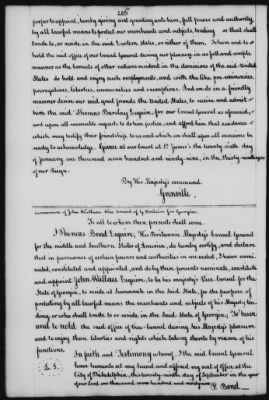 205
proper to appoint, hereby giving and granting unto him, full power and authority,
by all lawful means to protect our merchants and subjects, trading or that shall
trade to, or reside in the said Eastern states, or either of them. To have and to
hold the said office of our Consul General during our pleasure, in as full and ample
manner as the Consuls of other nations resident in the dominions of the said United
States do hold and enjoy such employments, and with the like pre-eminencies
prerogatives, liberties, immunities and exemptions. And we do in a friendly
manner desire our said good friends the United States, to receive and admit
him the said Thomas Barclay Esquire, for our Consul General as aforesaid,
and upon all reasonable requests to do him justice, and afford him that assistance
which may testify their friendship to us and which we shall upon all occasions be
ready to acknowledge. Given at our Court at St. James's the twenty ninth day
of January, one thousand seven hundred and ninety nine, in the thirty
of our Reign.
By His Majesty's command.
Grenville.
Commission of John Wallace Vice Consul of G. Britain for Georgia.
To all to whom these presents shall come.
I Thomas Bond Esquire, His Britannic Majesty's Consul General
for the middle and Southern States of America, do hereby certify, and declare
that in pursuance of certain powers and authorities in me vested, I have nomi-
nated, constituted and appointed, and do by these presents nominate, constitute
and appoint John Wallace Esquire, to be his Majesty's Vice Consul for the
State of Georgia, to reside at Savannah in the said State, for the purpose of
protecting by all lawful means the merchants and subjects of His Majesty, tra-
ding or who shall trade to or reside in the said State of Georgia, To have
and to hold the said office of Vice-Consul during his Majesty's pleasure
and to enjoy those liberties and rights which belong thereto by reason of his
functions.
L. S.
In faith and Testimony whereof I the said Consul General
have hereunto set my hand and affixed my seal of office at the
City of Philadelphia, this twenty-ninth day of September in the year
of our Lord one thousand seven hundred and
P. Bond